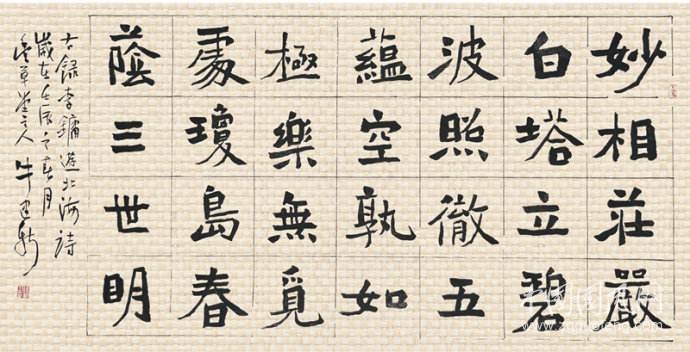 妙相莊嚴
白塔立碧
波照徹五
蘊空孰如
極樂無覓
處瓊島春
蔭三世明
右錄李鏞遊北海詩
歲在壬辰之春月
草堂主人 牛